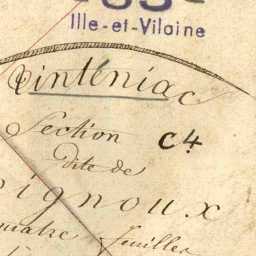 35
Ille-et-Vilaine
Tinténiac
Section C4.
dite de
ignoux
quatre feuilles